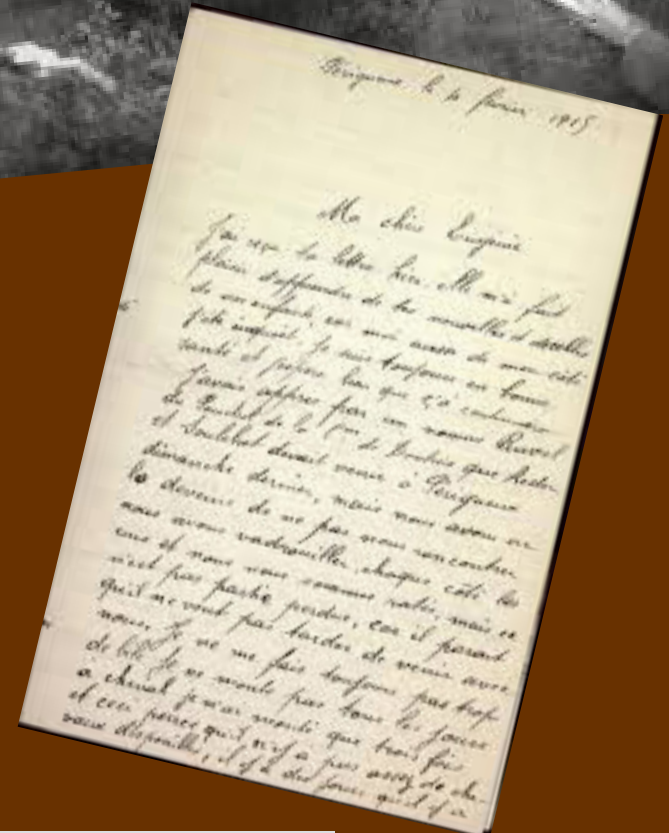 Périgueux le février 1915
Ma chère Eugénie
J'ai reçu ta lettre hier. Elle m'a fait
plaisir d'apprendre de tes nouvelles et de celles
de nos enfants car moi aussi de mon côté
j'étais inquiet. Je suis toujours en bonne
santé et j'espère bien que ça continuera
J'avais appris par un nommé
de de la de que
et devait venir à Périgueux
dimanche dernier, mais nous avons eu
la de ne pas nous rencontrer
nous avons vadrouiller chaque côté les
uns et nous nous sommes ratés, mais ce
n'est pas partie perdue, car il parait
qu'il ne vont pas tarder de venir avec
nous. Je ne me fais toujours pas trop
de bile Je ne monte pas tous les jours
à cheval je n'ai monté que trois fois
et ceci parce qu'il n'y a pas assez de che-
vaux disponibles, il y a des jours qu'il y a